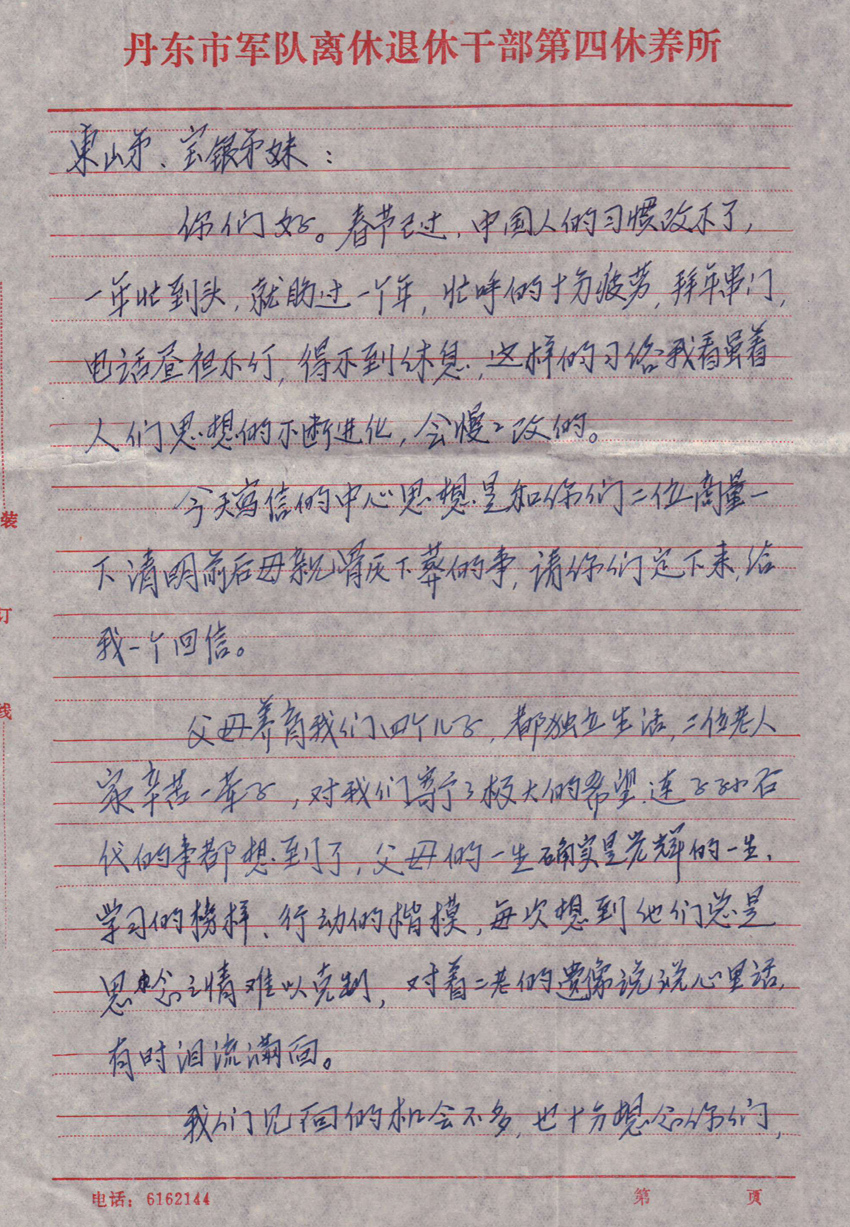 丹东市军队离休退休干部第四休养所
东山弟、宝银弟妹：
你们好。春节已过，中国人的习惯改不了，
一年忙到头，就盼过一个年，忙呼的十分疲劳，拜年串门，
电话昼夜不停，得不到休息，这样的习俗我看跟着
人们思想的不断进化，会慢〻改的。
今天写信的中心思想是和你们二位商量一
下清明前后母亲骨灰下葬的事，请你们定下来，给
我一个回信。
父母养育我们四个儿子，都独立生活，二位老人
家辛苦一辈子，对我们寄于了极大的希望，连子孙后
代的事都想到了，父母的一生确实是光辉的一生、
学习的榜样、行动的楷模，每次想到他们总是
思念之情难以克制，对着二老的遗像说说心里话，
有时泪流满面。
我们见面的机会不多，也十分想念你们，
电话：6162144
第 页
装
订
线